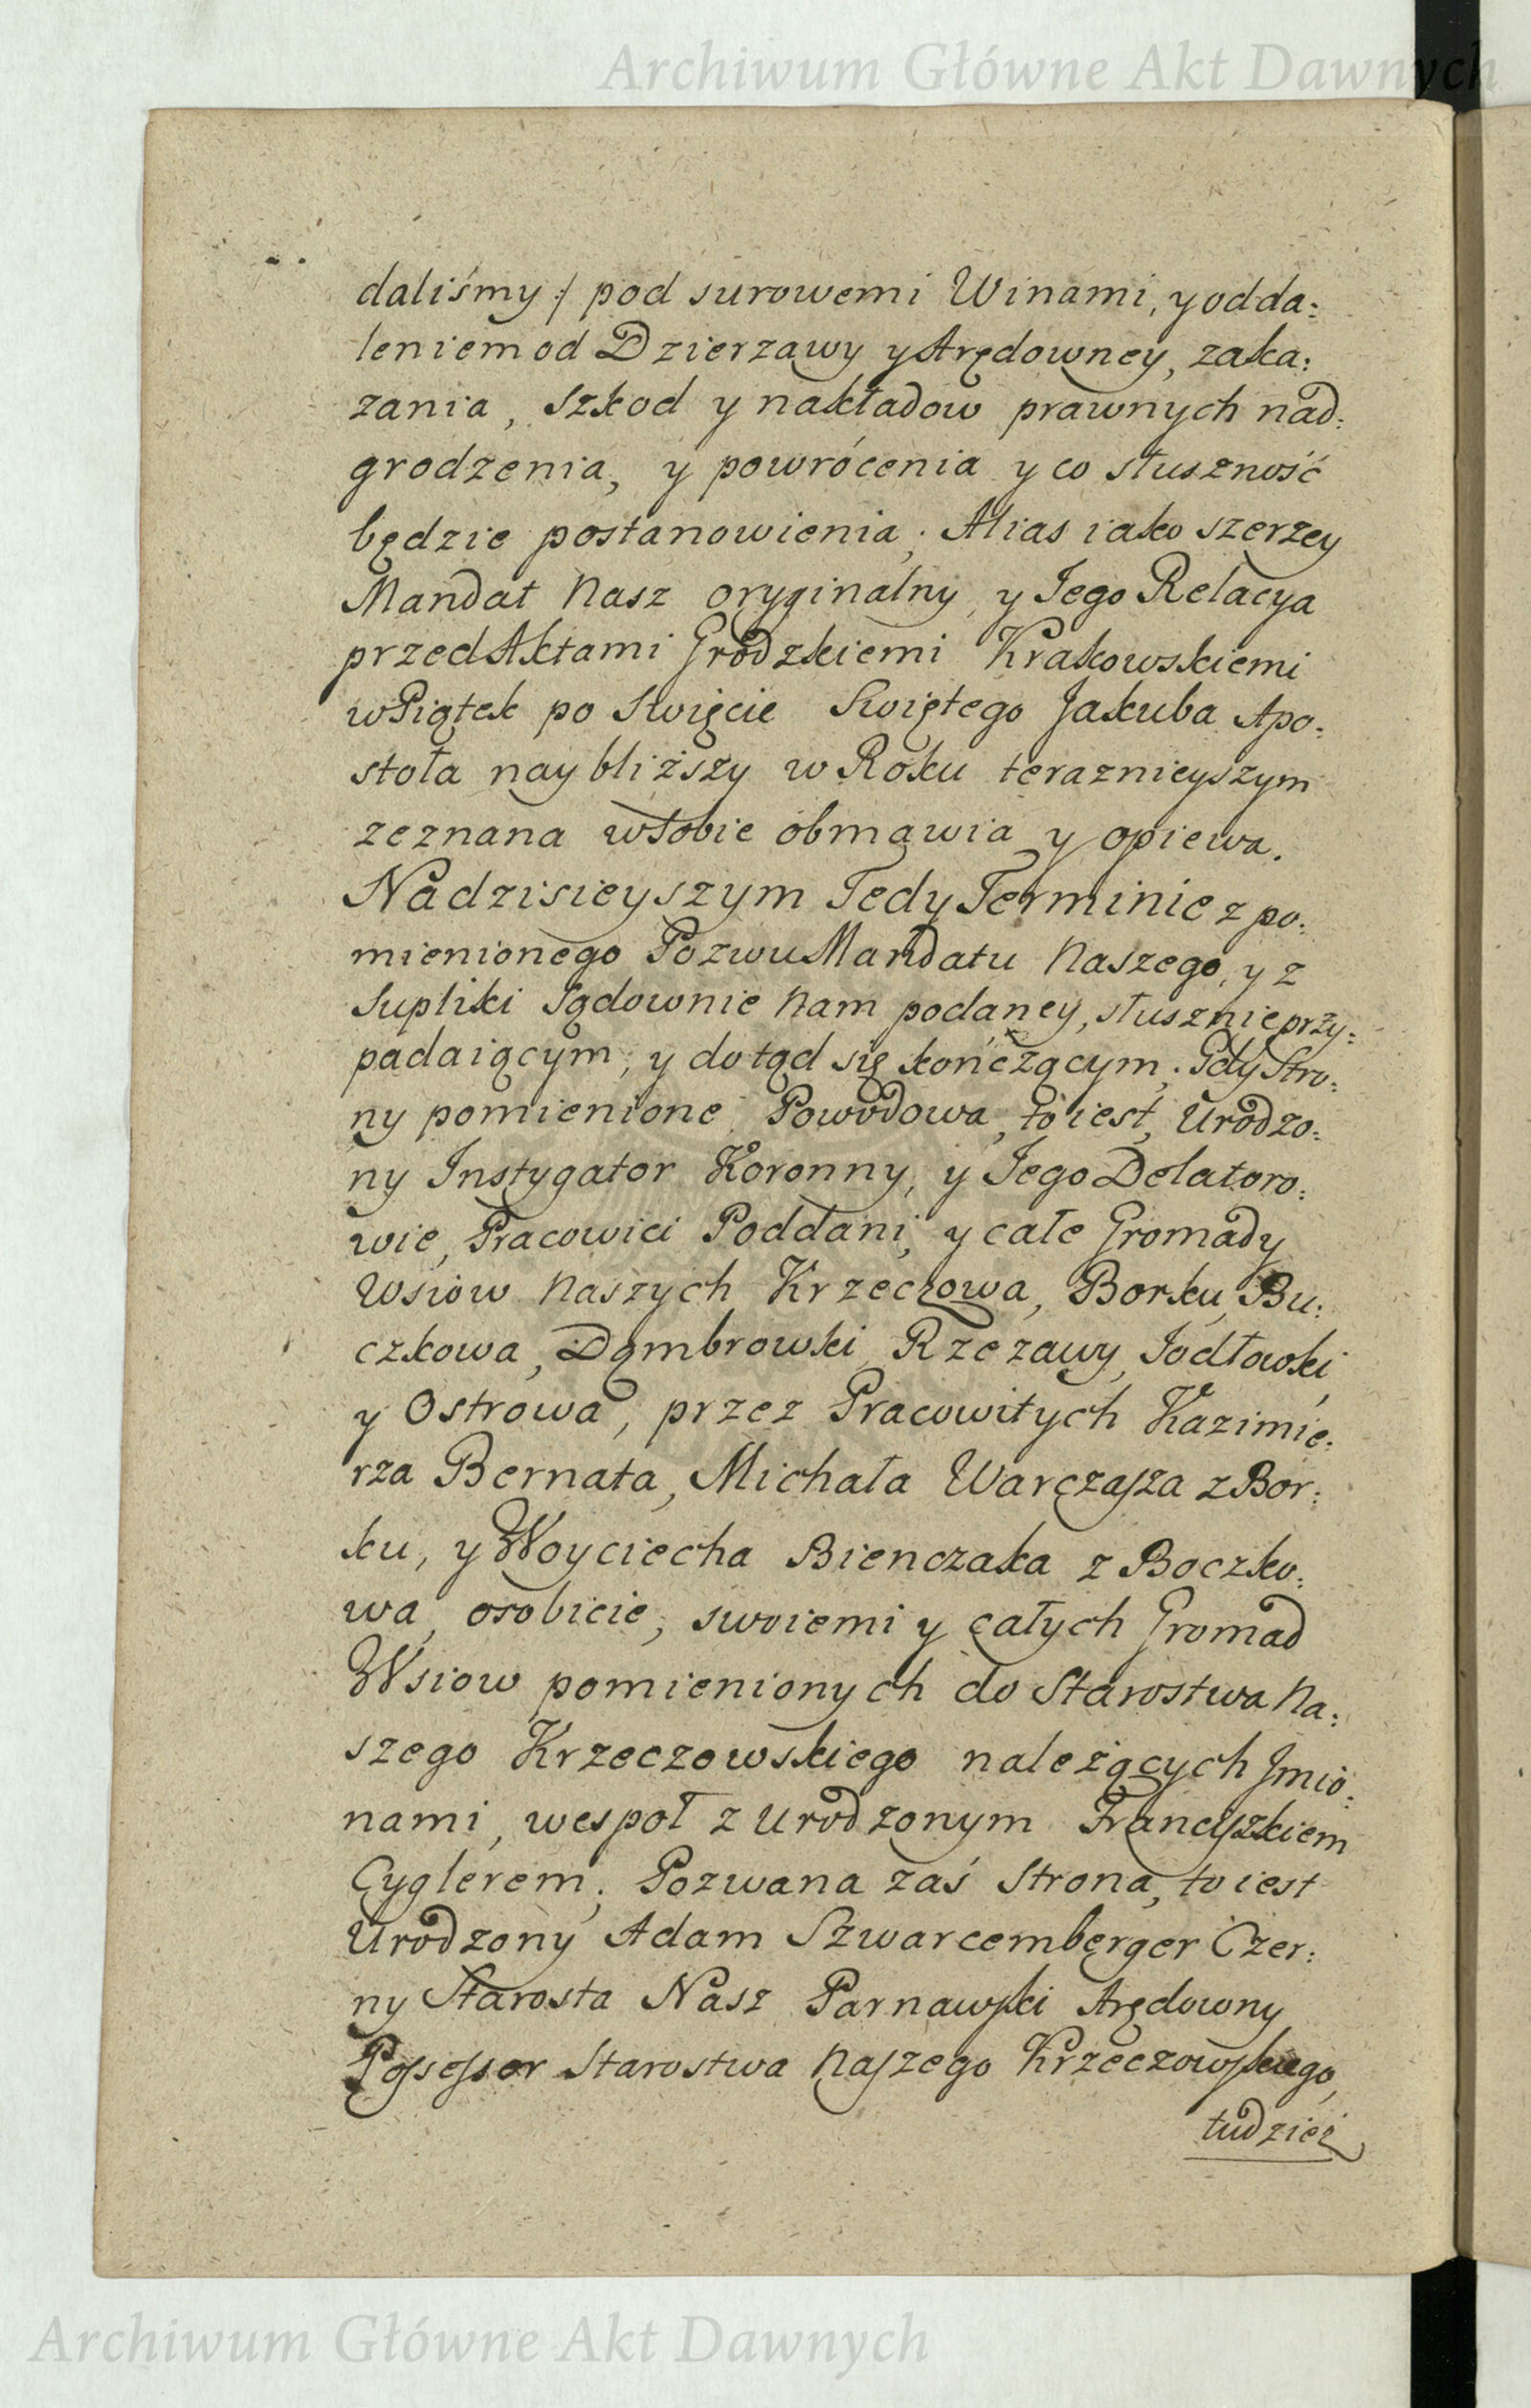 Archiwum Główne Akt Dawnych
daliśmy :/ pod surowemi Winami, y odda:
leniem od Dzierzawy y Arędowney, zaka:
zania, szkod y nakładow prawnych nad:
grodzenia, y powrócenia y co słuszność
będzie postanowienia; Alias iako szerzey
Mandat Nasz oryginalny, y Jego Relacya
przed Aktami Grodzkiemi Krakowskiemi
w Piątek po Swięcie Swiętego Jakuba Apo:
stoła naybliższy w Roku teraznieyszym
zeznana w sobie obmawia y opiewa.
Na dzisieyszym Tedy Terminie z po:
mienionego Pozwu Mandatu Naszego, y z
Supliki Sądownie Nam podaney, słusznie przy:
padaiącym, y dotąd się kończącym. Gdy Stro:
ny pomienione Powodowa, to iest, Urodzo:
ny Instygator Koronny, y Jego Delatoro:
wie, Pracowici Poddani, y całe Gromady
Wsiow Naszych Krzeczowa, Borku, Bu:
czkowa, Dąmbrowki, Rzezawy, Jodłowki,
y Ostrowa, przez Pracowitych Kazimie:
rza Bernata, Michała Warczasza z Bor:
ku, y Woyciecha Bienczaka z Boczko:
wa, osobicie, swoiemi y całych Gromad
Wsiow pomienionych do Starostwa Na:
szego Krzeczowskiego należących Jmio:
nami, wespoł z Urodzonym Franciszkiem
Cyglerem; Pozwana zaś Strona, to iest
Urodzony Adam Szwarcemberger Czer:
ny Starosta Nasz Parnawski Arędowny
Possessor Starostwa Naszego Krzeczowskiego,
tudziez
Archiwum Główne Akt Dawnych